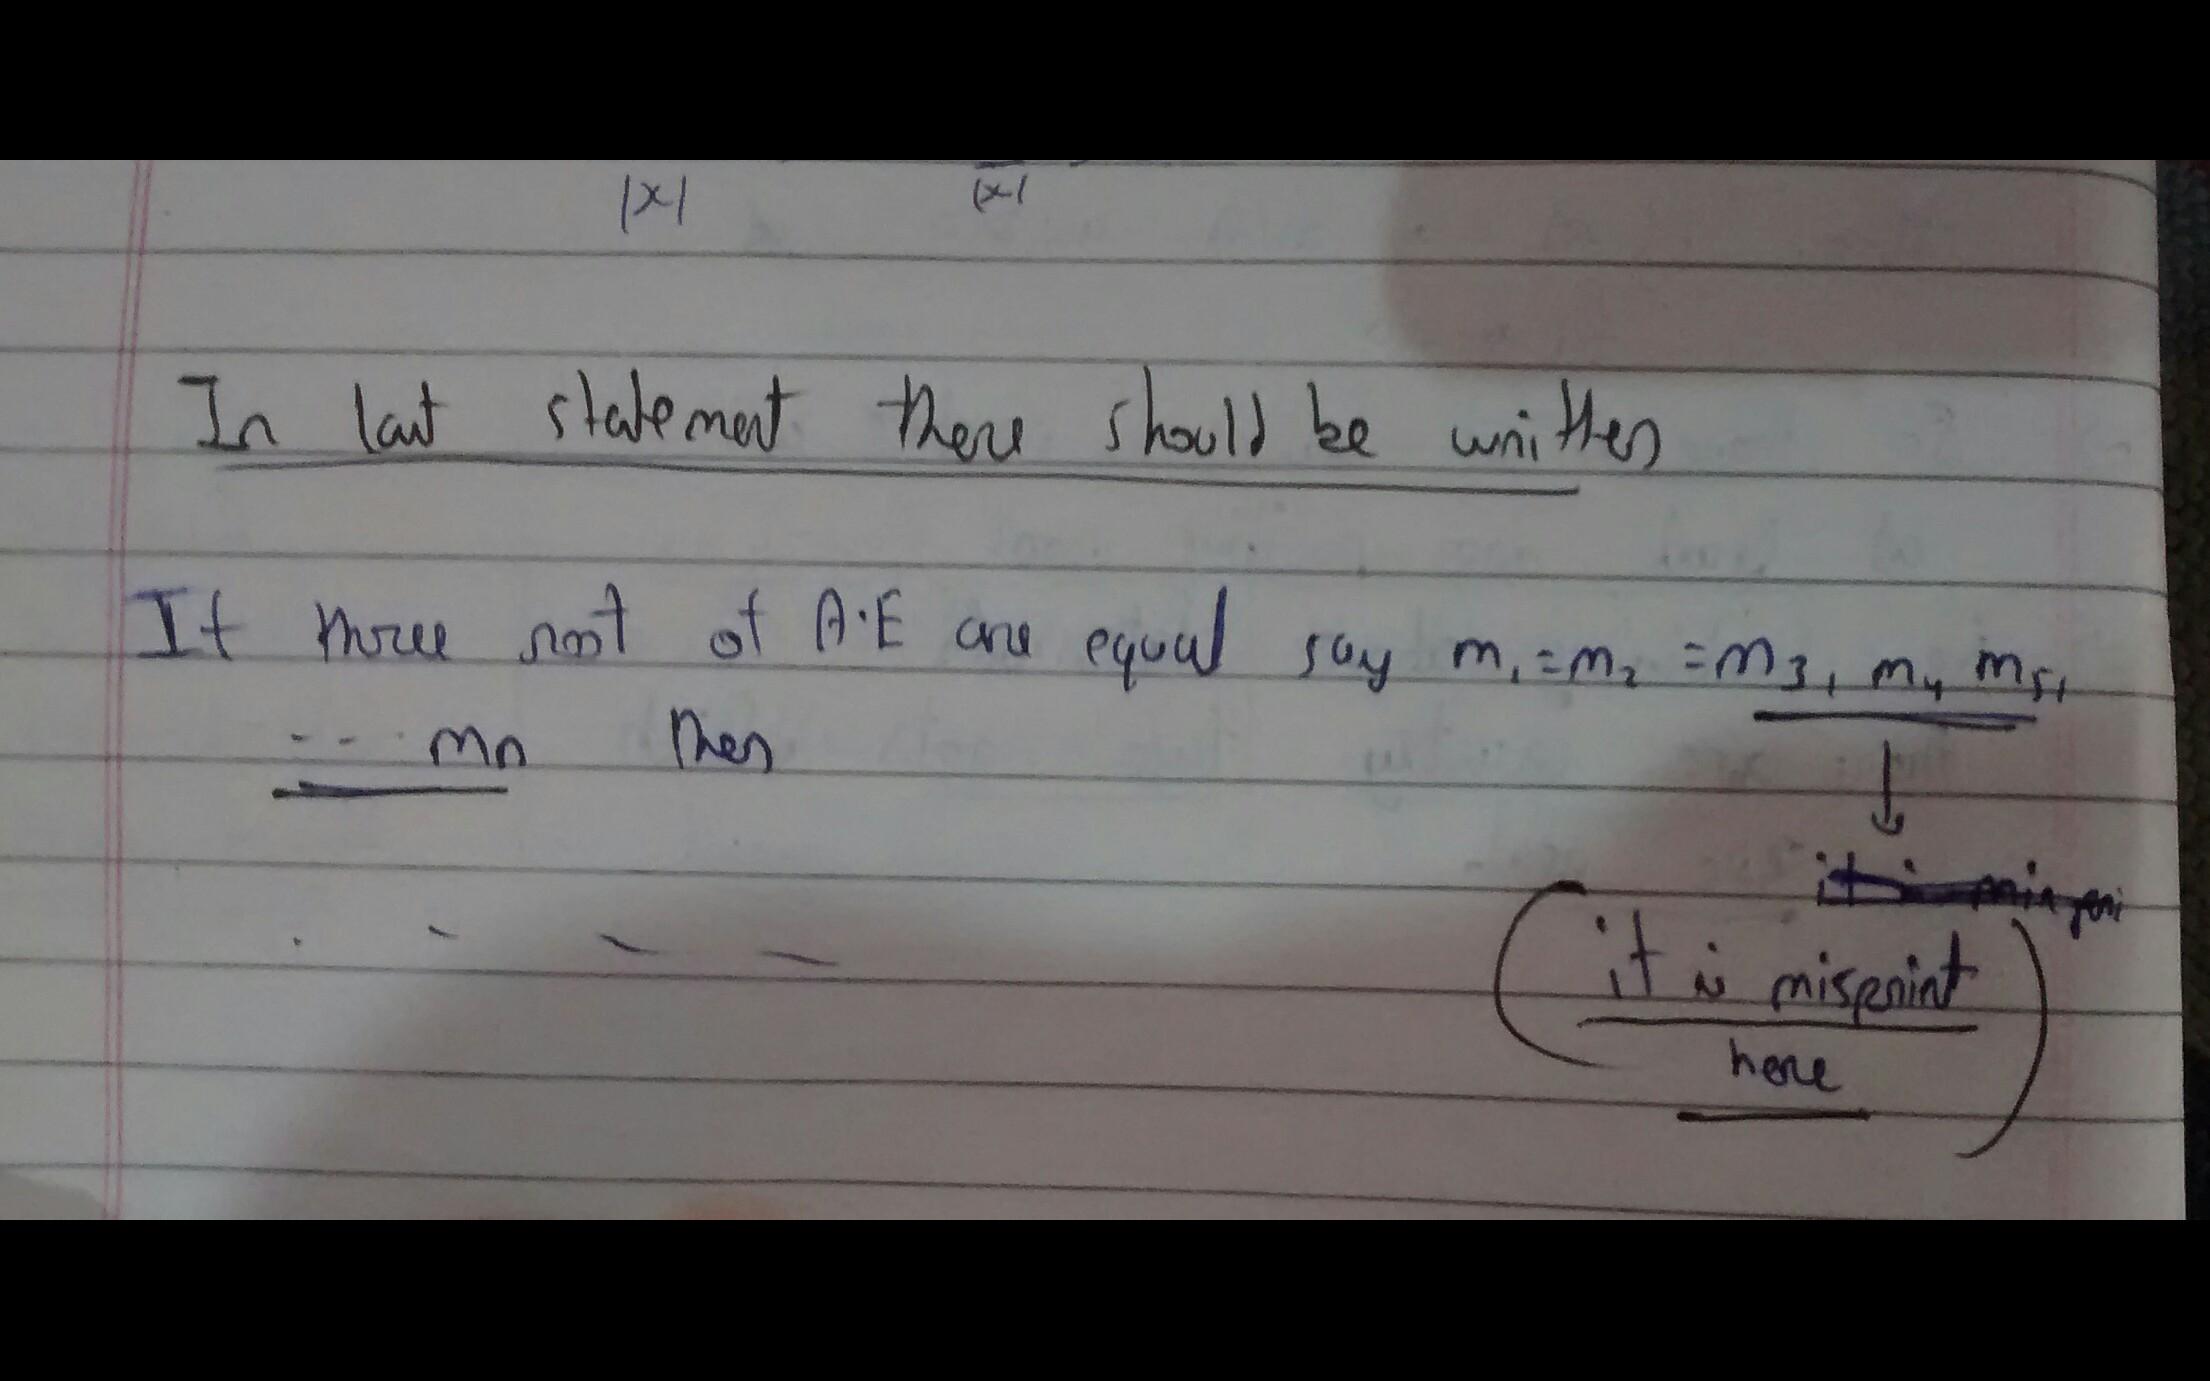 |x| |x|
In last statement there should be written
If three root of A.E are equal say m₁=m₂ =m₃, m₄ m₅,
--- mn then
it is
it is misprint
here